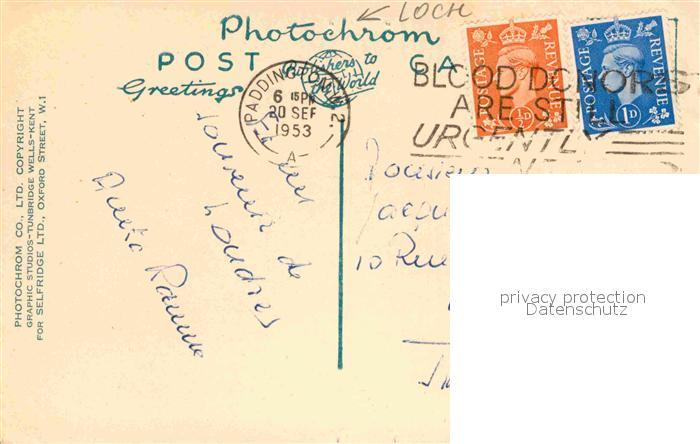 LOCH
Photochrom
POST CA
Publishers to
the World
Greetings
PADDINGTON W.2.
6 15 PM
20 SEP
1953
A
POSTAGE REVENUE
½D
POSTAGE REVENUE
1D
BLOOD DONORS
ARE STILL
URGENTLY
souvenir de
Londres
10 Rue
PHOTOCHROM CO., LTD. COPYRIGHT
GRAPHIC STUDIOS-TUNBRIDGE WELLS-KENT
FOR SELFRIDGE LTD., OXFORD STREET, W.1
privacy protection
Datenschutz